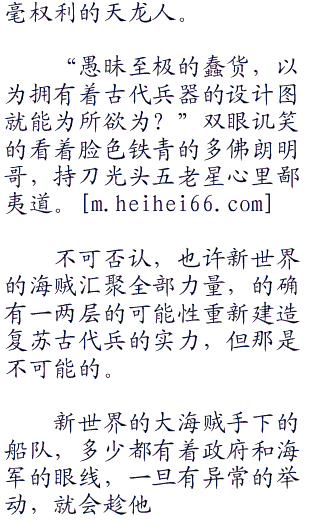 毫权利的天龙人。
“愚昧至极的蠢货，以
为拥有着古代兵器的设计图
就能为所欲为？”双眼讥笑
的看着脸色铁青的多佛朗明
哥，持刀光头五老星心里鄙
夷道。[m.heihei66.com]
不可否认，也许新世界
的海贼汇聚全部力量，的确
有一两层的可能性重新建造
复苏古代兵的实力，但那是
不可能的。
新世界的大海贼手下的
船队，多少都有着政府和海
军的眼线，一旦有异常的举
动，就会趁他